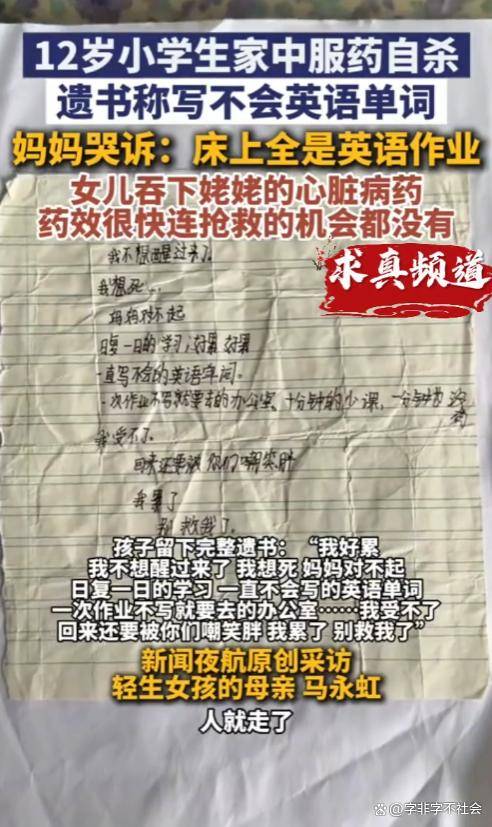 12岁小学生家中服药自杀
遗书称写不会英语单词
妈妈哭诉：床上全是英语作业
女儿吞下姥姥的心脏病药
药效很快连抢救的机会都没有
求真频道
我不想醒过来了
我想死
妈妈对不起
日复一日的学习，好累 好累
一直写不会的英语单词。
一次作业不写就要去的办公室、十分钟的少课，一分钟都没
有
我受不了
回来还要被你们嘲笑胖
我累了
别救我了。
孩子留下完整遗书：“我好累
我不想醒过来了 我想死 妈妈对不起
日复一日的学习 一直不会写的英语单词
一次作业不写就要去的办公室……我受不了
回来还要被你们嘲笑胖 我累了 别救我了”
新闻夜航原创采访
轻生女孩的母亲 马永虹
人就走了
@字非字不社会